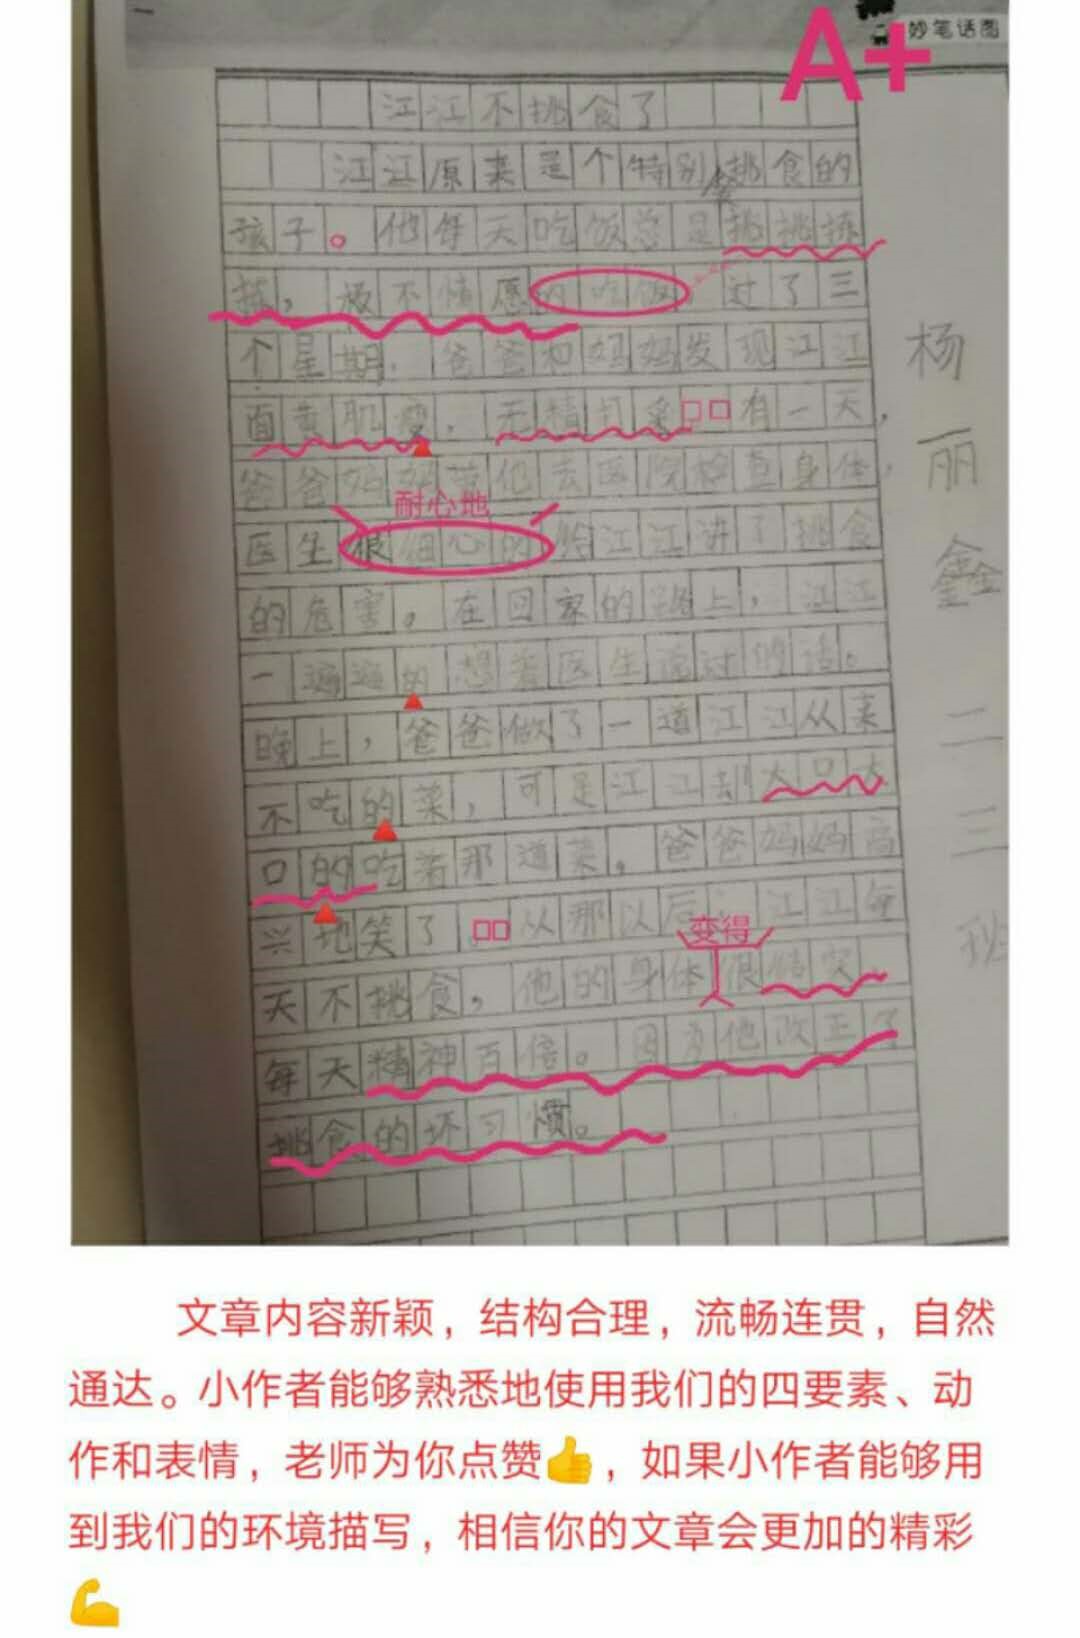 妙笔话图
A+
江江不挑食了
江江原来是个特别挑食的
孩子。他每天吃饭总是挑挑拣
拣，极不情愿的吃饭，过了三
个星期，爸爸和妈妈发现江江
面黄肌瘦，无精打采□□有一天，
爸爸妈妈带他去医院检查身体，
耐心地
医生很细心的给江江讲了挑食
的危害。在回家的路上，江江
一遍遍的想着医生说过的话。
晚上，爸爸做了一道江江从来
不吃的菜，可是江江却大口大
口的吃着那道菜，爸爸妈妈高
兴地笑了。□□从那以后，江江每
变得
天不挑食，他的身体很结实，
每天精神百倍。因为他改正了
挑食的坏习惯。
杨丽鑫 二三班
文章内容新颖，结构合理，流畅连贯，自然
通达。小作者能够熟悉地使用我们的四要素、动
作和表情，老师为你点赞👍，如果小作者能够用
到我们的环境描写，相信你的文章会更加的精彩
💪